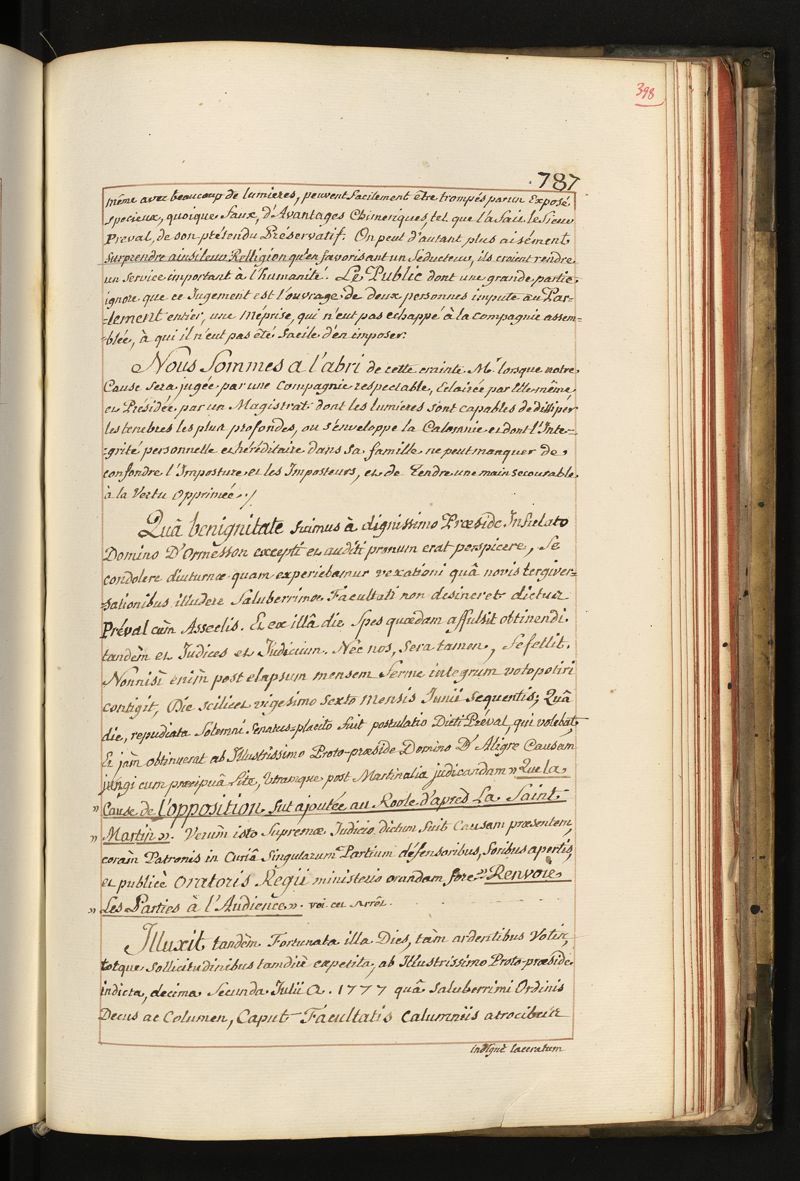 398
787
même avec beaucoup de lumieres, peuvent facilement être trompés par un Exposé
specieux, quoique faux, d'Avantages Chimeriques, tel que l'a fait le Sieur
Préval, de son prétendu Préservatif. On peut d'autant plus aisément
Surprendre ainsi leur Relligion qu'en favorisant un Séducteur, ils croient rendre
un Service important à l'humanité. Le Public dont une grande partie
ignore que ce Jugement est l'ouvrage de deux personnes impute au Par-
-lement entier, une Méprise, qui n'eut pas echappé à la compagnie assem-
-blée, à qui il n'eut pas été facile d'en imposer.
Nous Sommes a l'abri de cette crainte Mr. lorsque notre
Cause sera jugée par une Compagnie respectable, Eclairée par Elle même
et Présidée par un Magistrat dont les lumieres sont capables de dissiper
les tenebres les plus profondes, ou s'enveloppe la Calomnie et dont l'Inte-
-grité personnelle et héréditaire dans sa famille ne peut manquer de
confondre l'Imposture et les Imposteurs, et de Tendre une main secourable
à la Vertu Opprimée ./
Quâ benignitate fuimus à dignissimo Præside Infulato
Domino D'Ormesson excepti et auditi pronum erat perspicere, Se
condolere diuturnæ quam experiebamur vexationi quâ novis tergiver-
-sationibus illudere Saluberrimæ Facultati non desineret dictus
Préval cum Asseclis. Et ex illâ die Spes quædam affulsit obtinendi
tandèm et Judices et Judicium. Nec nos, Sera tamen, Sefellit.
Nonnisi enim post elapsum mensem ferme integrum voto potiri
contigit, Die scilicet vigesimo Sexto Mensis Junii Sequentis; Quâ
die, repudiata Solemni Senatus-placito fuit postulatio Dicti Préval, qui volebat,
Et jàm obtinuerat ab Illustrissimo Proto-præside Domino D'Aligre Causam
jungi cum præcipuâ Lite, Utramque post Martinalia judicandam » Que la
» Cause de l'opposition fut ajoutée au Roole d'après La Saint
» Martin ». Verùm isto Supremæ Judicio dictum fuit Causam præsentem,
coràm Patronis in Curiâ Singularum Partium defensoribus, foribus apertis,
et publicè Oratoris Regii ministerio orandam fore » Renvoie
» Les Parties à l'Audience ». voi. cet Arrêt.
Illuxit tandèm Fortunata illa Dies, tàm ardentibus Votis,
totque sollicitudinibus tamdiù expetita, ab Illustrissimo Proto-præside
indicta, decima Secunda Julii A. 1777 quâ Saluberrimi Ordinis
Decus ac Columen, Caput Facultatis calumniis atrocibus
indignè laceratum